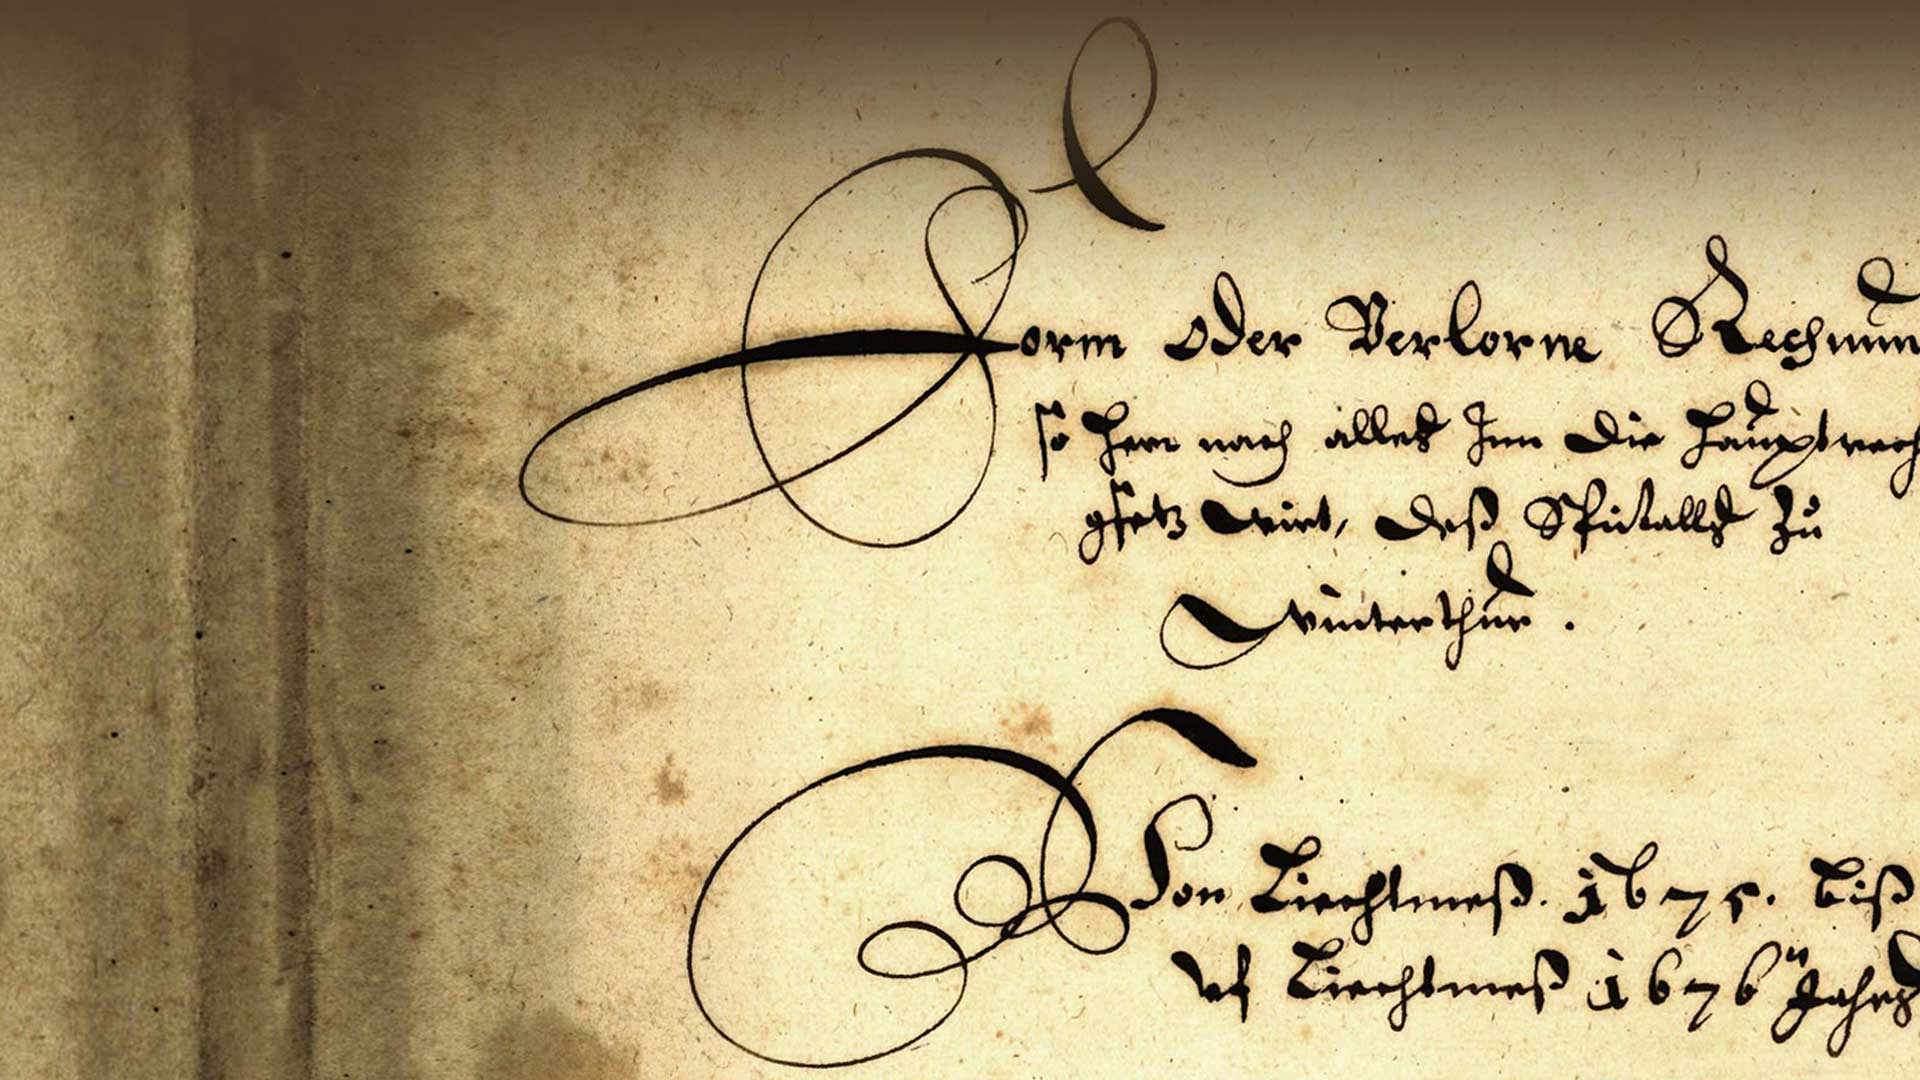 Form oder Verlorne Rechnun
so hern nach alles Inn die hauptrech
gsetz wirt, deß Spitalls zů
Winterthur.
Von Liechtmeß. 1675. biß
uf Liechtmeß 1676 Jahrs